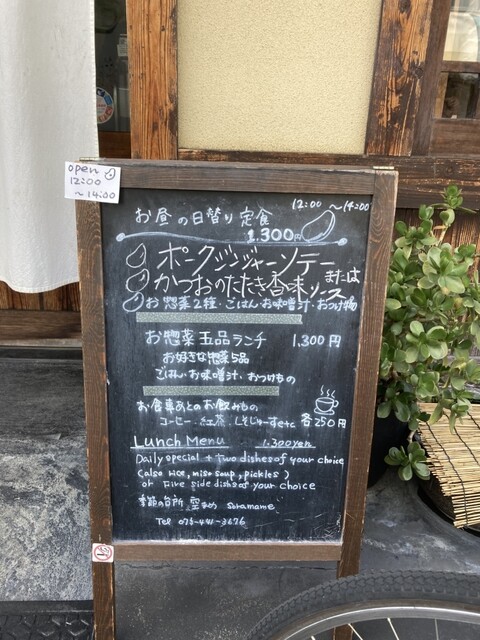 open
12:00
～14:00
12:00 ～14:00
お昼の日替り定食
1.300円
ポークジンジャーソテー
または
かつおのたたき香味ソース
お惣菜2種・ごはん・お味噌汁・おつけ物
お惣菜五品ランチ 1,300円
お好きな惣菜5品
ごはん・お味噌汁・おつけもの
お食事あとのお飲みもの
コーヒー・紅茶・しそじゅーすetc 各250円
Lunch Menu 1.300yen
Daily special + two dishes of your choice
(also rice, miso soup, pickles)
or Five side dishes of your choice
季節の台所 空まめ soramame
Tel 075-441-3676